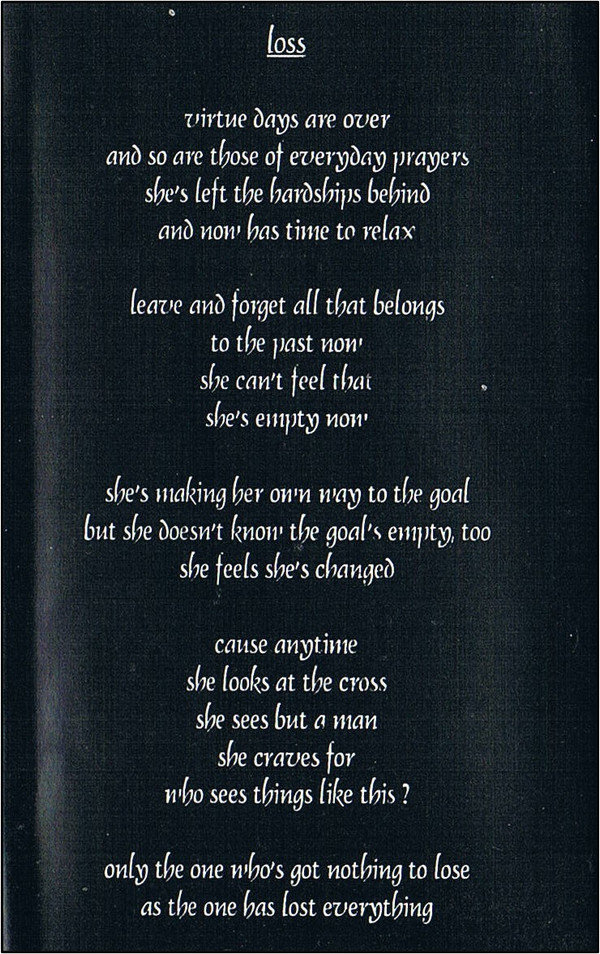 loss
virtue days are over
and so are those of everyday prayers
she's left the hardships behind
and now has time to relax
leave and forget all that belongs
to the past now
she can't feel that
she's empty now
she's making her own way to the goal
but she doesn't know the goal's empty, too
she feels she's changed
cause anytime
she looks at the cross
she sees but a man
she craves for
who sees things like this ?
only the one who's got nothing to lose
as the one has lost everything